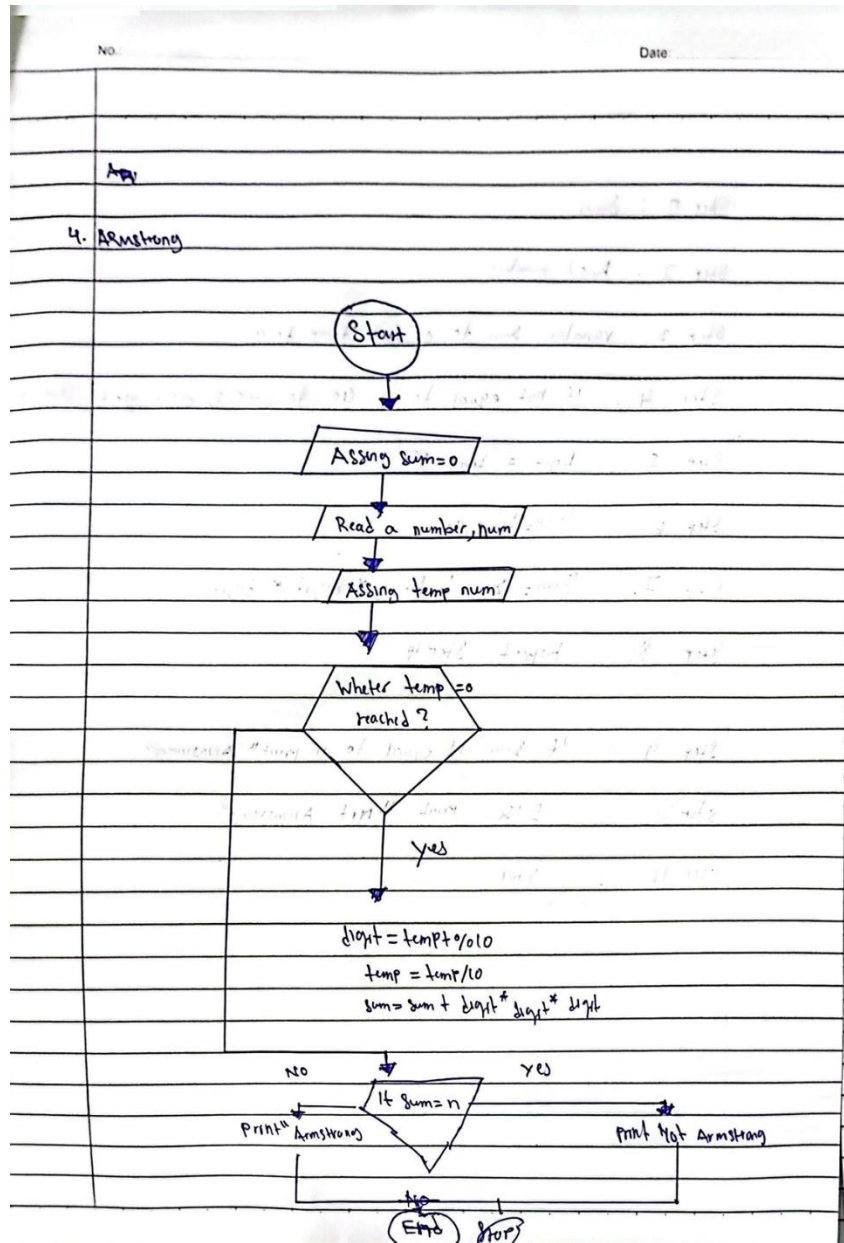 No.
Date:
4. Armstrong
Start
Assing sum=0
Read a number, num
Assing temp num
Wheter temp =0
reached ?
yes
digit = tempt%10
temp = temp/10
sum = sum + digit* digit* digit
NO
Yes
If sum=n
Print" Armstrong
Print Not Armstrong
No
End
Stop